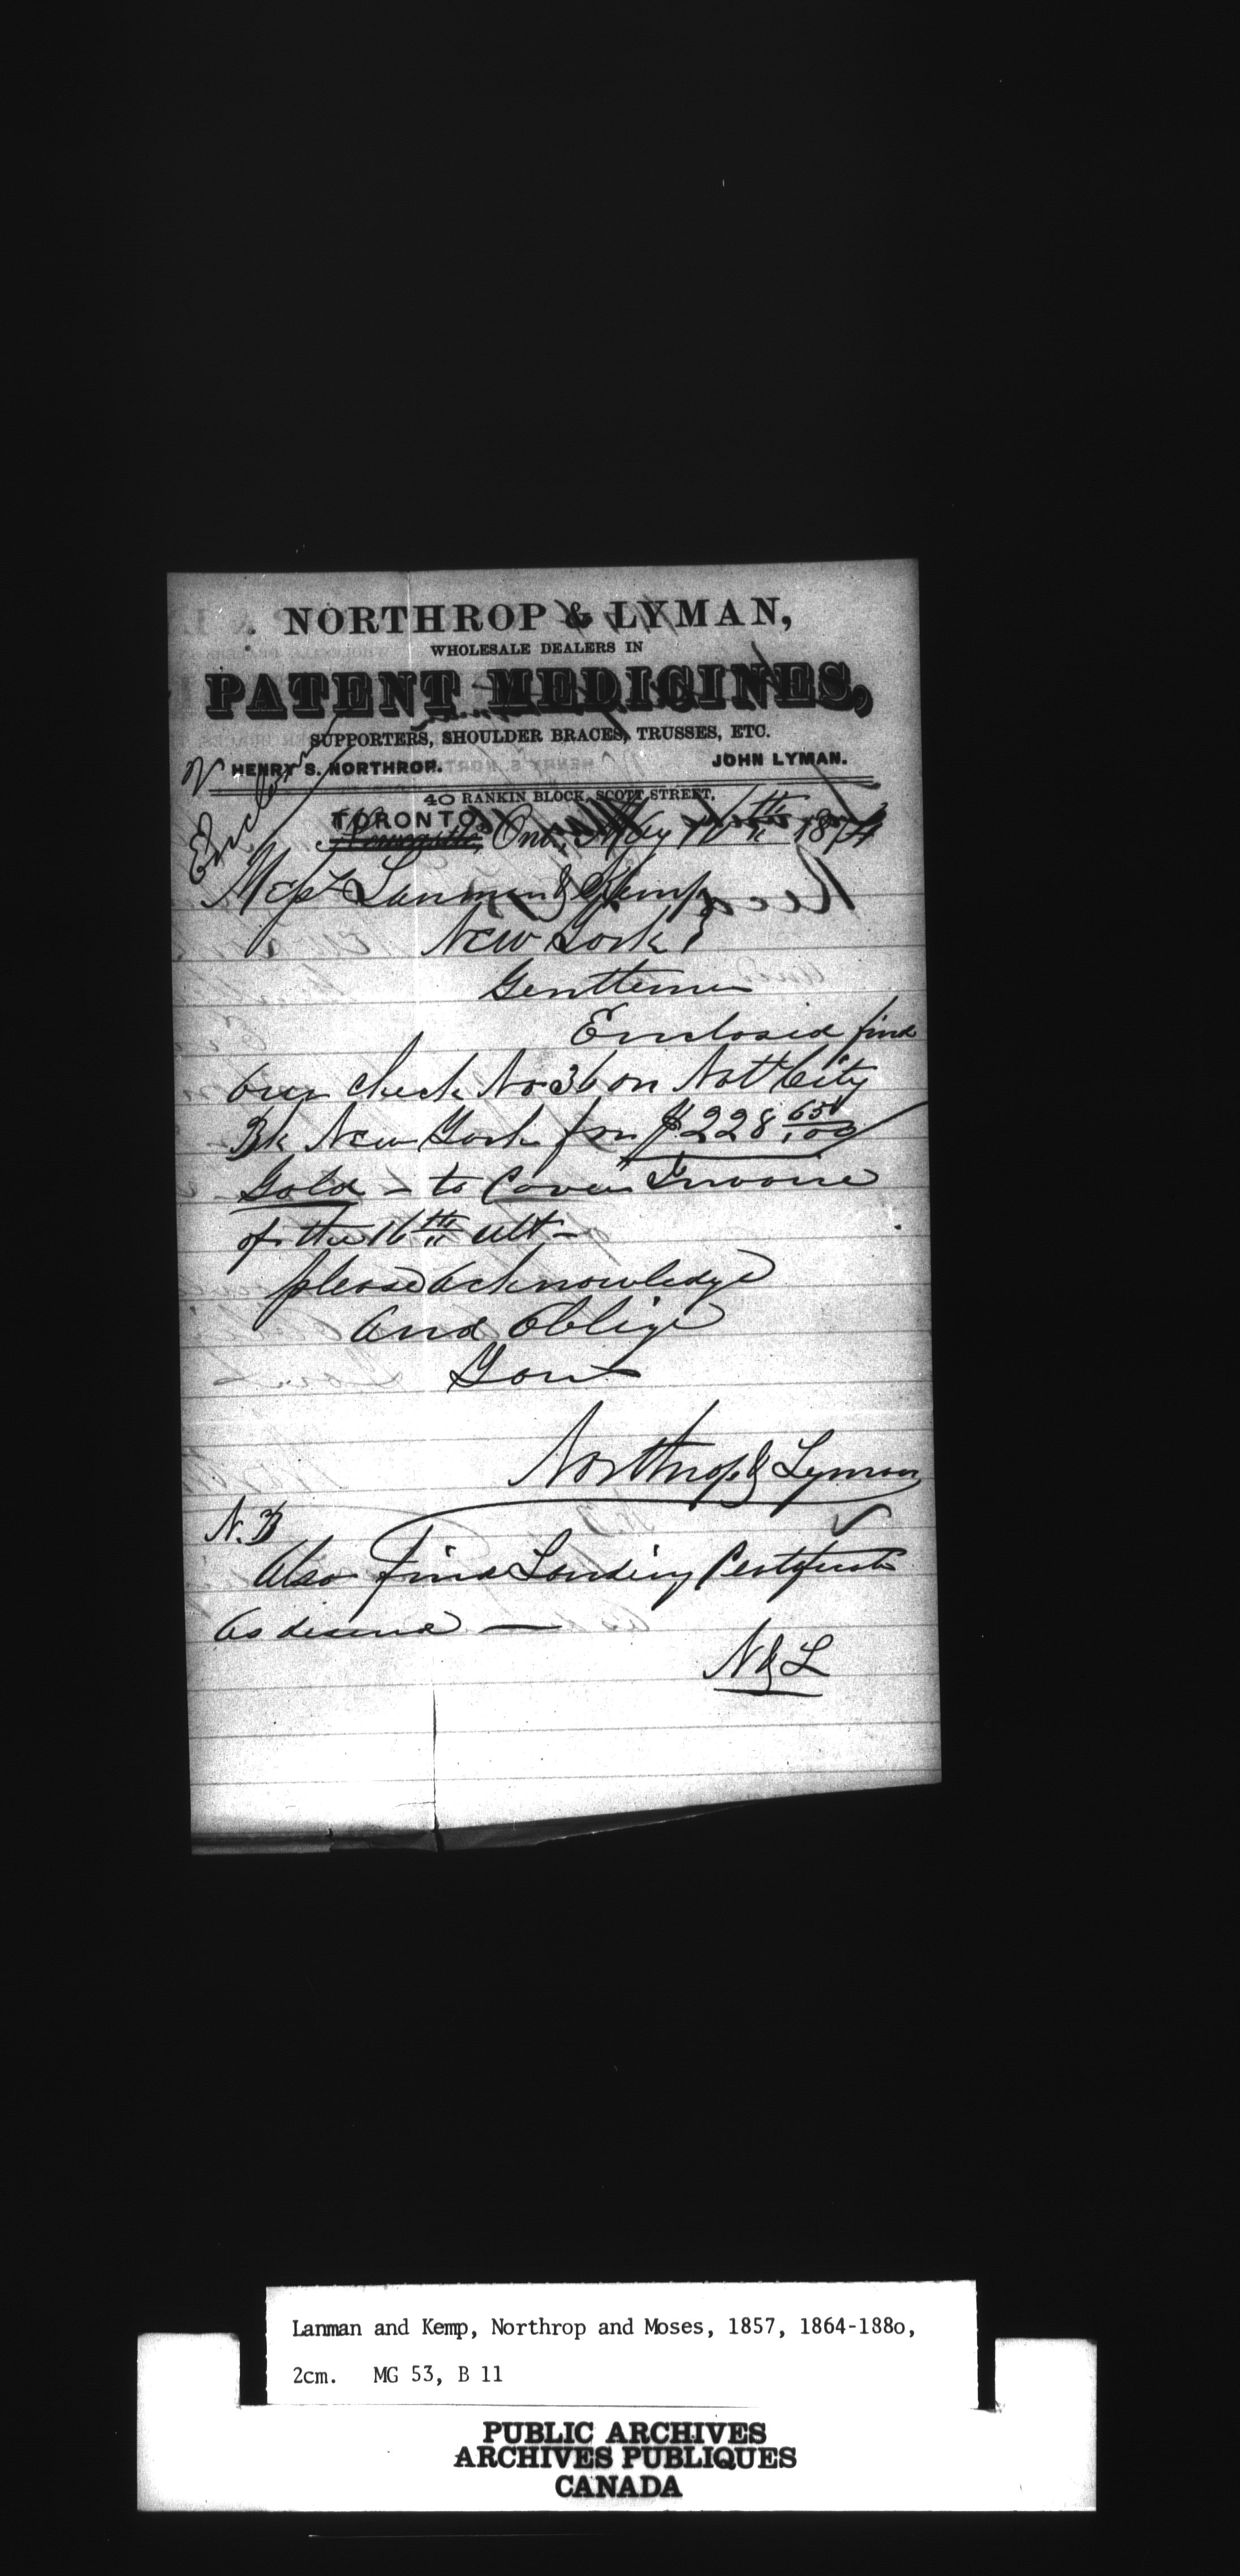 NORTHROP & LYMAN,
WHOLESALE DEALERS IN
PATENT MEDICINES,
SUPPORTERS, SHOULDER BRACES, TRUSSES, ETC.
HENRY S. NORTHROP. JOHN LYMAN.
40 RANKIN BLOCK, SCOTT STREET,
TORONTO
Newcastle, Ont., May 187
Messrs Lanman & Kemp
New York
Gentlemen
Enclosed find
our check No 36 on Natl City
Bk New York for $228 65/100
Gold - to Cover Invoice
of the 16th ult -
please acknowledge
and oblige
Yours
Northrop & Lyman
N.B
Also find Landing Certificate
as desired —
N & L
Lanman and Kemp, Northrop and Moses, 1857, 1864-188o,
2cm. MG 53, B 11
PUBLIC ARCHIVES
ARCHIVES PUBLIQUES
CANADA